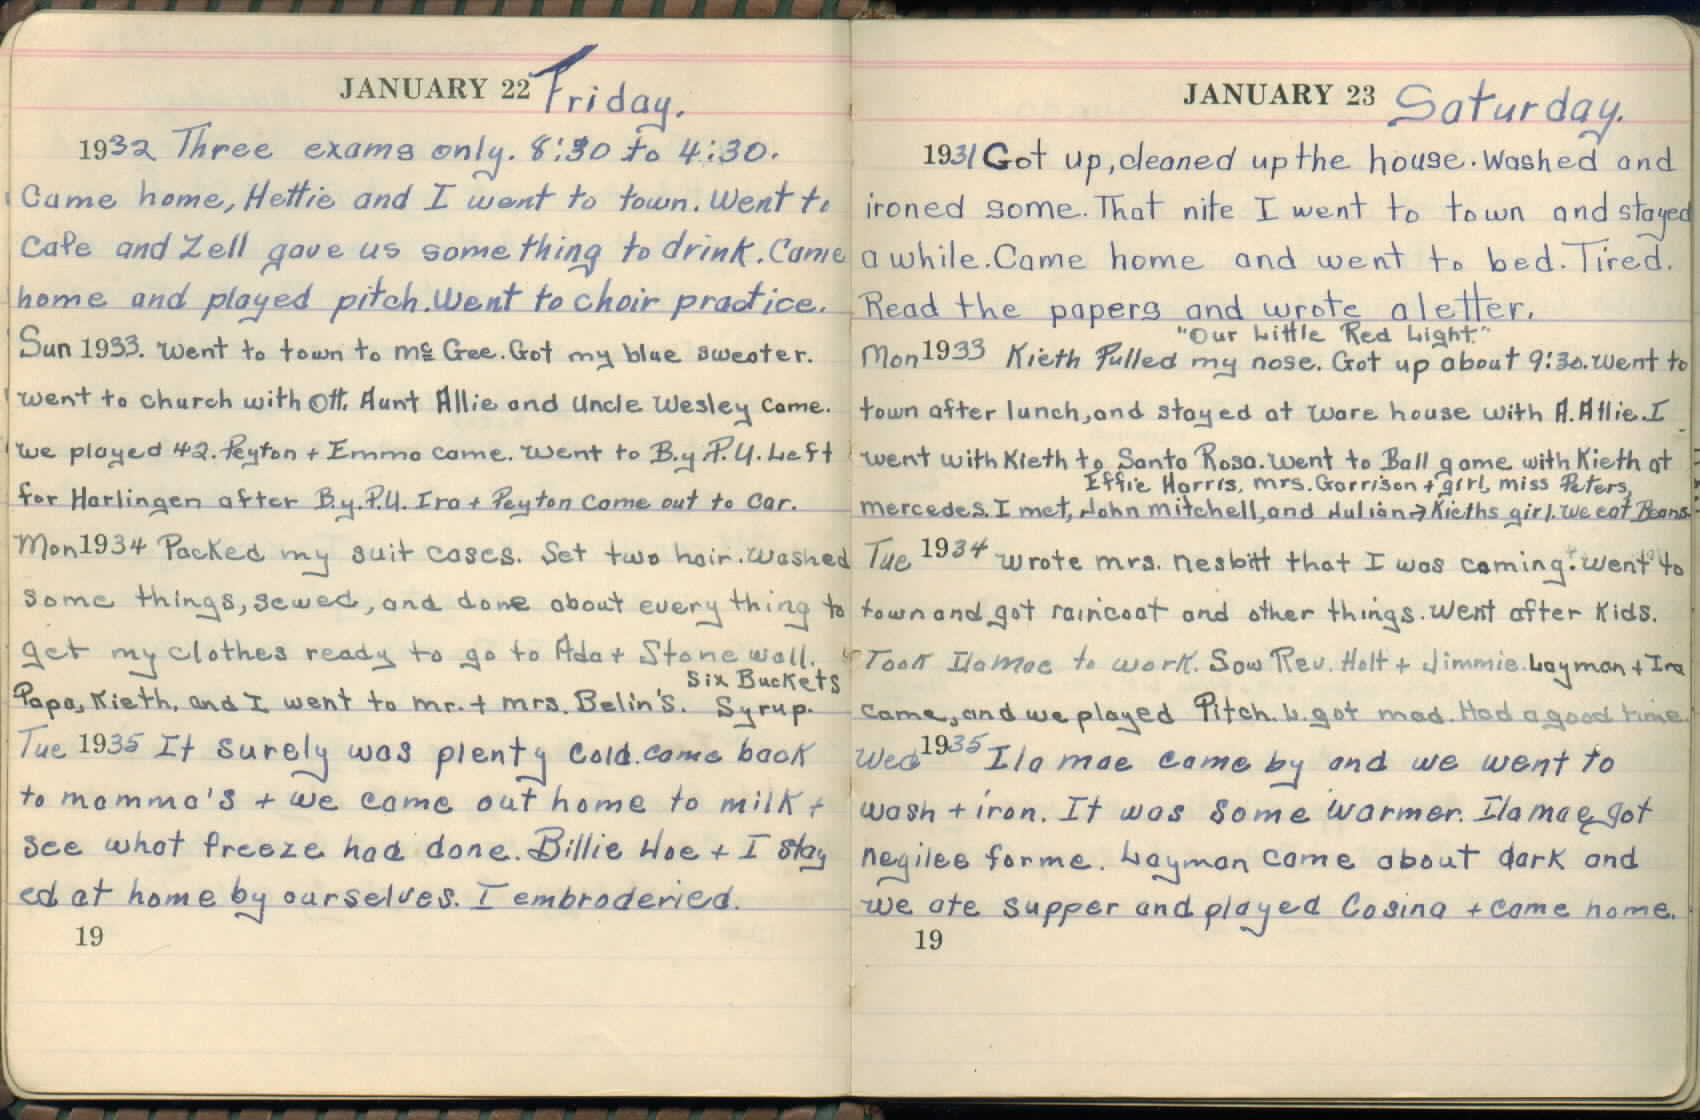 JANUARY 22 Friday.
1932 Three exams only. 8:30 to 4:30.
Came home, Hettie and I went to town. Went to
Cafe and Zell gave us something to drink. Came
home and played pitch. Went to choir practice.
Sun 1933. Went to town to Mc Gee. Got my blue sweater.
went to church with Ott. Aunt Allie and Uncle Wesley came.
we played 42. Peyton + Emma came. Went to B.y.P.U. Left
for Harlingen after B.y.P.U. Ira + Peyton came out to car.
Mon 1934 Packed my suit cases. Set two hair. Washed
some things, sewed, and done about every thing to
get my clothes ready to go to Ada + Stonewall.
Six Buckets
Papa, Kieth, and I went to mr. + mrs. Belin's. Syrup.
Tue 1935 It surely was plenty cold. came back
to mamma's + we came out home to milk +
see what freeze had done. Billie Hoe + I stay
ed at home by ourselves. I embroderied.
19
JANUARY 23 Saturday.
1931 Got up, cleaned up the house. Washed and
ironed some. That nite I went to town and stayed
a while. Came home and went to bed. Tired.
Read the papers and wrote a letter.
"Our Little Red Light."
Mon 1933 Kieth Pulled my nose. Got up about 9:30. went to
town after lunch, and stayed at ware house with A. Allie. I
went with Kieth to Santa Rosa. Went to Ball game with Kieth at
Effie Harris, mrs. Garrison + girl, miss Peters,
mercedes. I met, John mitchell, and Julian → Kieths girl. We eat Beans.
Tue 1934 Wrote mrs. Nesbitt that I was coming. Went to
town and got raincoat and other things. Went after Kids.
Took Ila Mae to work. Saw Rev. Holt + Jimmie. Layman + Ira
came, and we played Pitch. L. got mad. Had a good time.
Wed 1935 Ila mae came by and we went to
wash + iron. It was some warmer. Ila mae got
negilee for me. Layman came about dark and
we ate supper and played Cosina + came home.
19